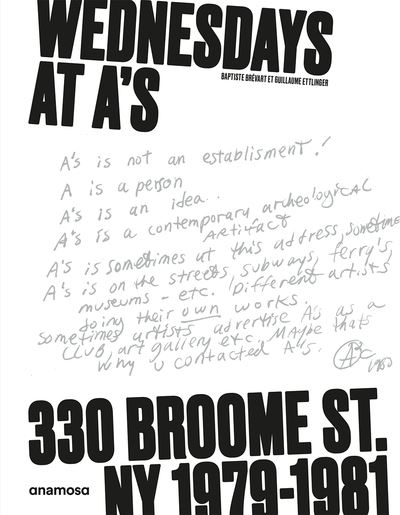 WEDNESDAYS
AT A'S
BAPTISTE BRÉVART ET GUILLAUME ETTLINGER
A's is not an establisment!
A is a person
A's is an idea..
A's is a contemporary archeological
Artifact
A's is sometimes at this address, sometime
A's is on the streets, subways, ferry's,
museums - etc. Different artists
doing their own works.
sometimes artists advertise A's as a
CLUB, art gallery etc. MAybe thats
why u contacted A's.
ABC
1980
330 BROOME ST.
NY 1979-1981
anamosa